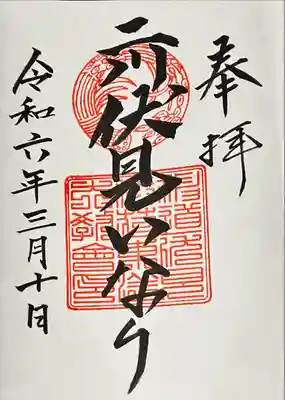 奉拝
伏見いなり
令和六年三月十日